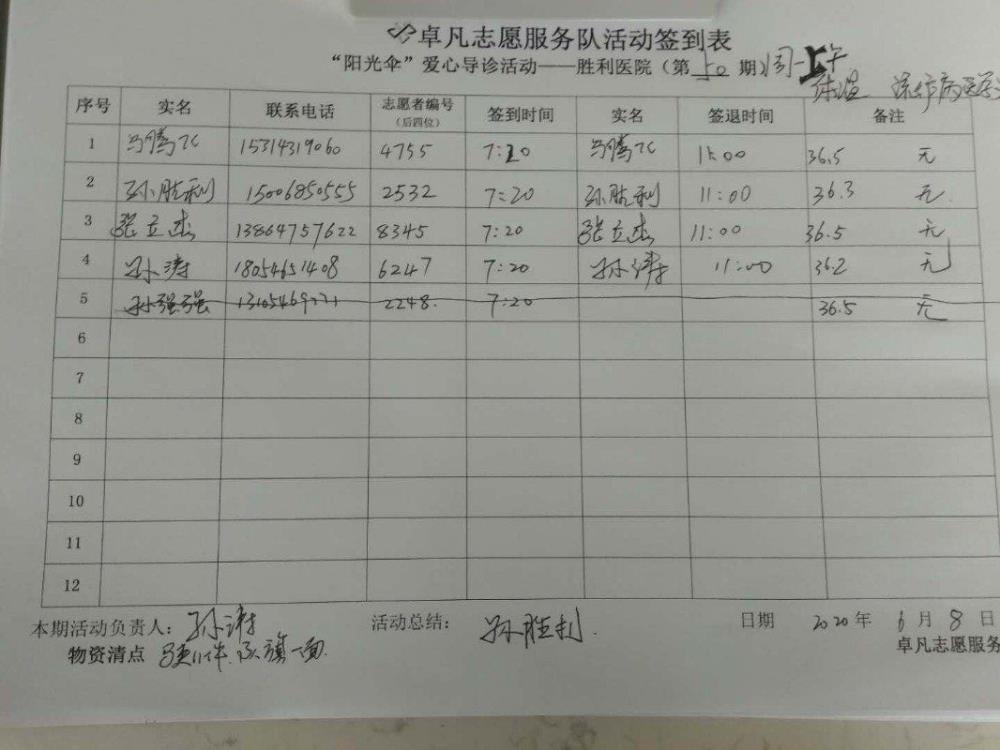 卓凡志愿服务队活动签到表
“阳光伞”爱心导诊活动——胜利医院（第10期）周一上午
体温
序号 实名 联系电话 志愿者编号（后四位） 签到时间 实名 签退时间 备注
1 马腾飞 15314319060 4755 7:20 马腾飞 11:00 36.5 无
2 孙胜利 15006850555 2532 7:20 孙胜利 11:00 36.3 无
3 张立杰 13864757622 8345 7:20 张立杰 11:00 36.5 无
4 孙涛 18054651408 6247 7:20 孙涛 11:00 36.2 无
5 孙强强 2248. 7:20 36.5 无
6
7
8
9
10
11
12
本期活动负责人：孙涛 活动总结：孙胜利. 日期 2020年6月8日
物资清点 马夹11件.队旗一面. 卓凡志愿服务